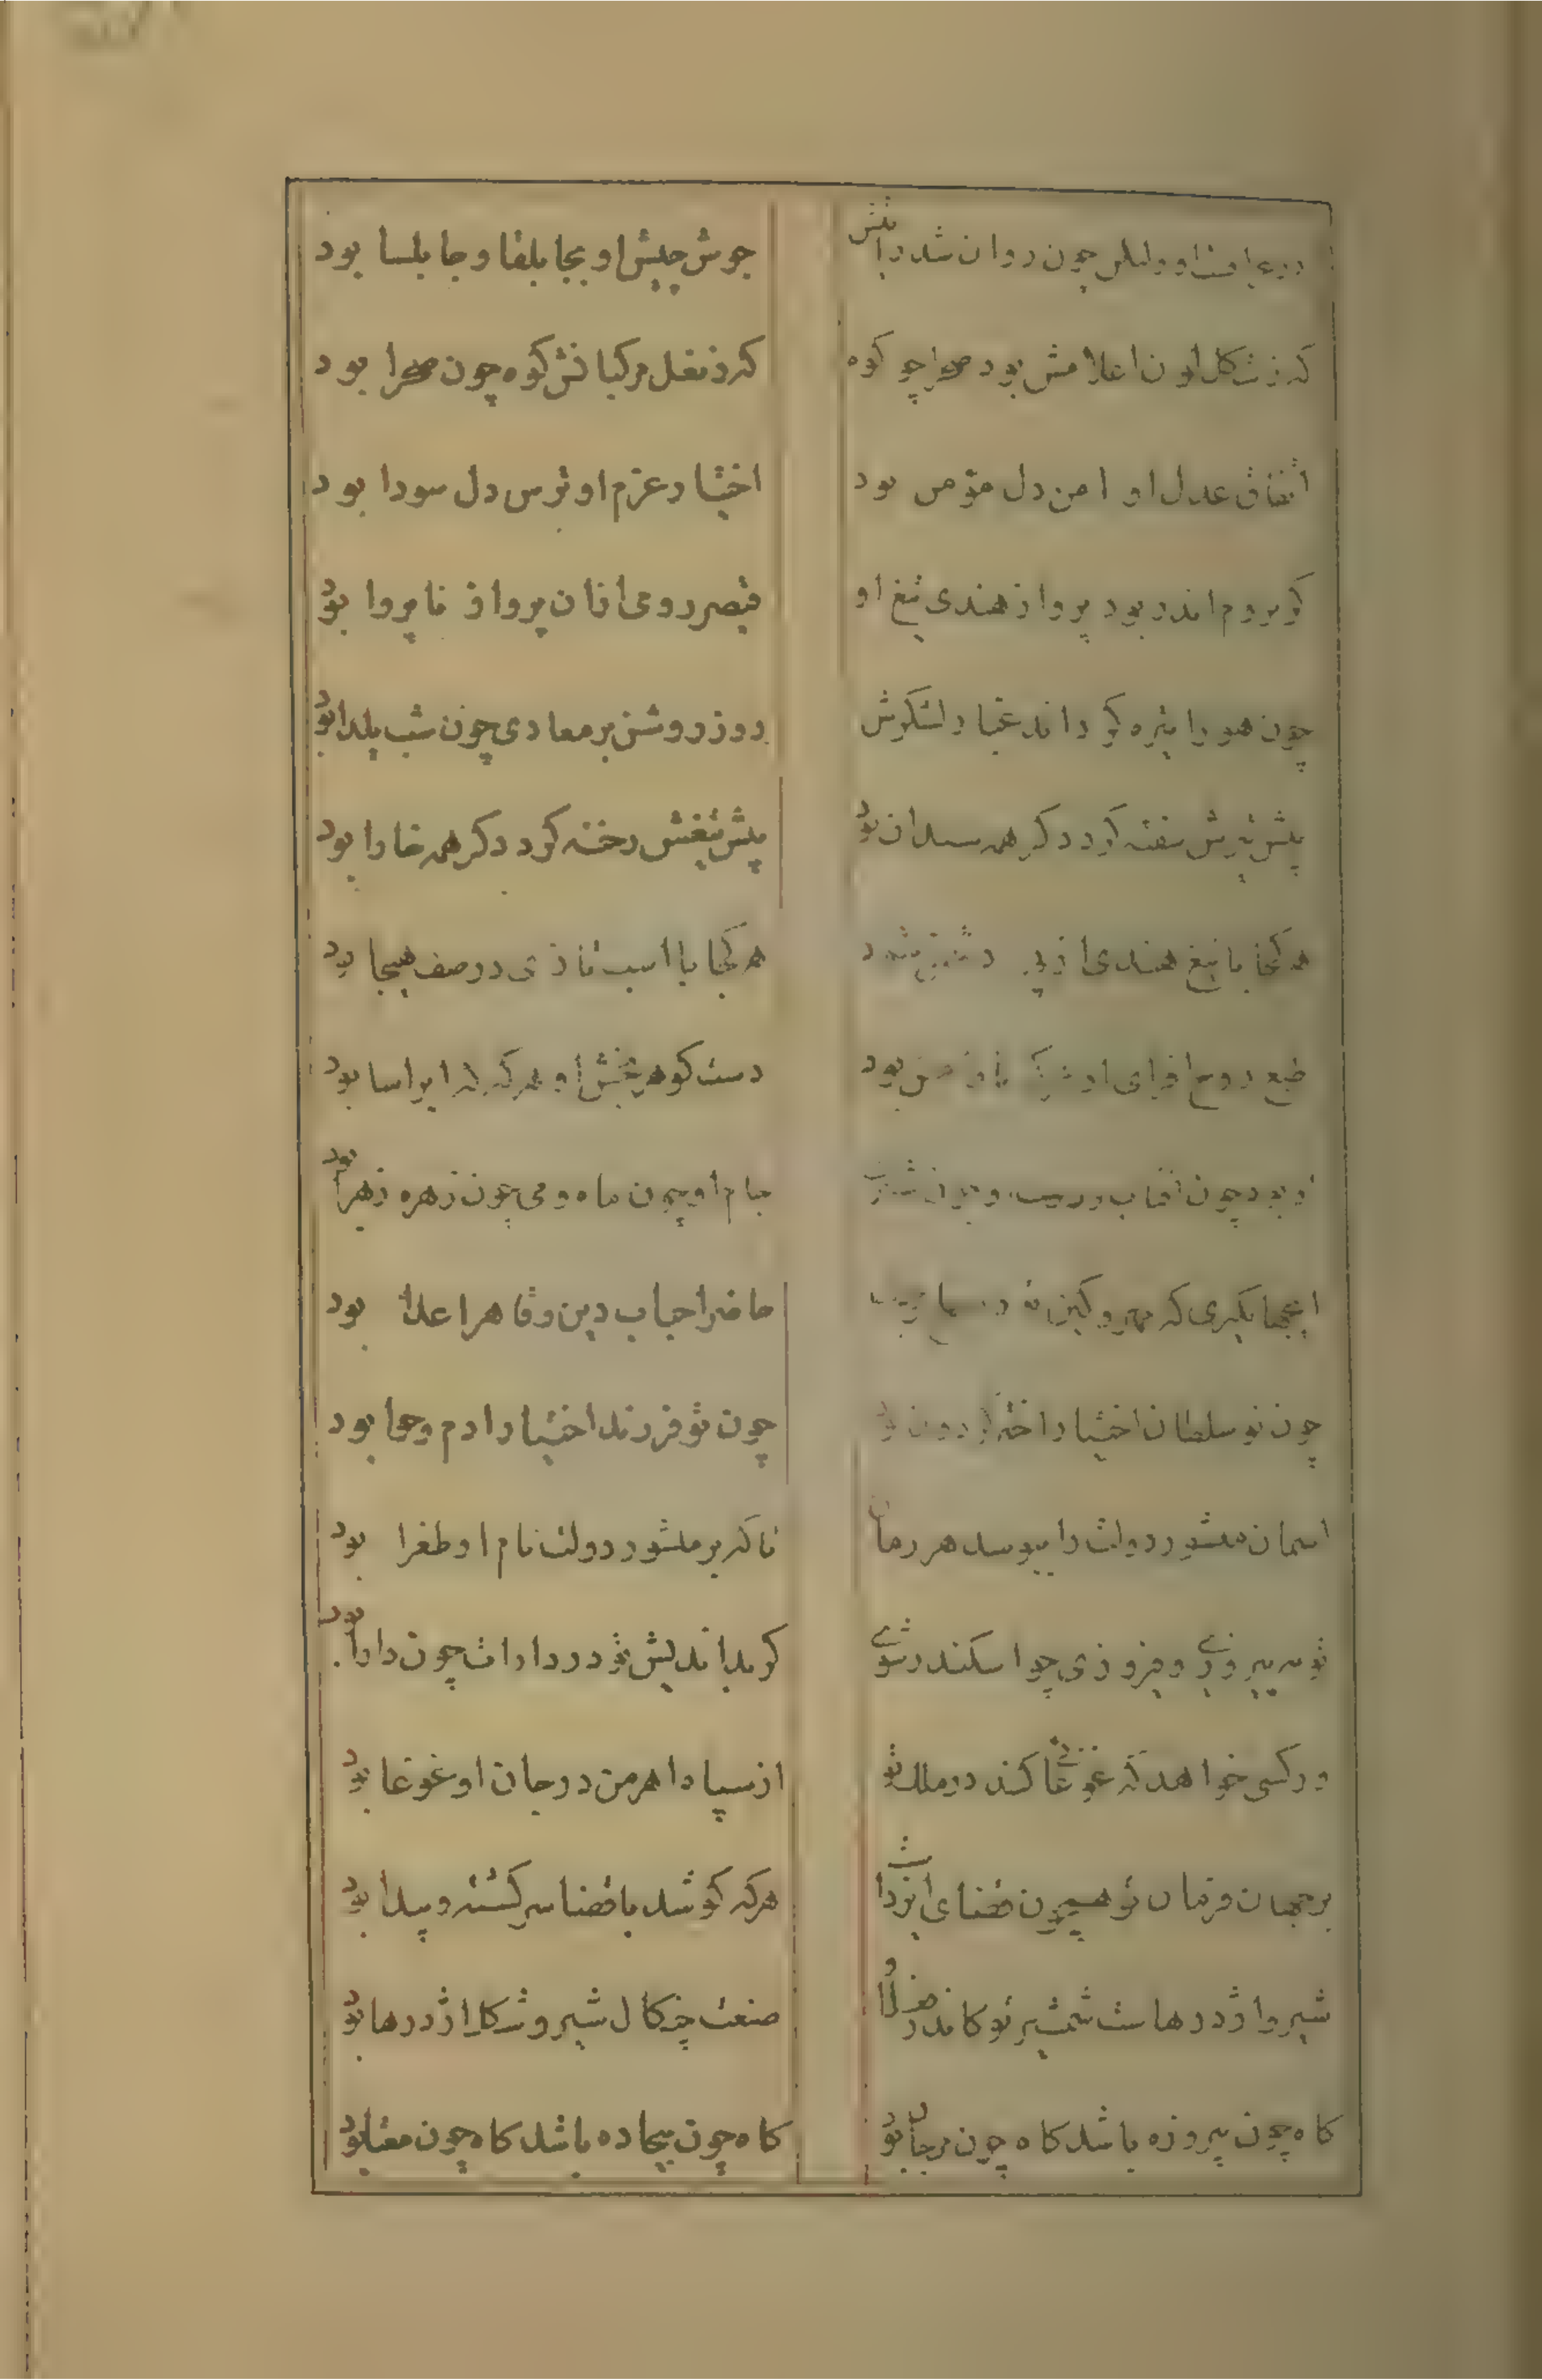 چون روان شد رایتش
جوش جیش او بجابلقا و جابلسا بود
که ز شکل لون اعلامش بود صحرا چو کوه
که ز نعل مرکبانش کوه چون صحرا بود
اتفاق عدل او امن دل مؤمن بود
اختیار عزم او ترس دل سودا بود
کو بروم اندر بود پرواز هندی تیغ او
قیصر رومی ازان پرواز ناپروا بود
چون هوا را تیره کرداند غبار لشکرش
روز روشن بر معادی چون شب یلدا بود
پیش تیرش سفته کردد کر همه سندان بود
پیش تیغش رخنه کردد کر همه خارا بود
هر کجا با تیغ هندی از پی
هر کجا با اسب تازی در صف هیجا بود
طبع روح افزای او بود
دست کوهربخش او هرکه که ابر اسا بود
او بود چون افتاب و چون
جام او چون ماه و می چون زهره زهرا بود
ای جهانکیری که مهر و کین تو
حاضر احباب دین و قاهر اعدا بود
چون تو سلطان اختیار اختر کردون بود
چون تو فرزند اختیار ادم و حوا بود
اسمان منشور دولت را ببوسد هر زمان
تا که بر منشور دولت نام او طغرا بود
تو به پیروزی و فیروزی چو اسکندر شوی
کو بداندیش تو در دارات چون دارا بود
ور کسی خواهد که غوغا کند در ملک تو
از سپاه اهرمن در جان او غوغا بود
بر جهان فرمان تو همچون قضای ایزد است
هرکه کوشد با قضا سرکشته و شیدا بود
شیر و اژدرهاست شمشیر تو کاندر مغز او
صنعت چنکال شیر و شکل اژدرها بود
کاه چون پیروزه باشد کاه چون مرجان بود
کاه چون بیجاده باشد کاه چون مینا بود